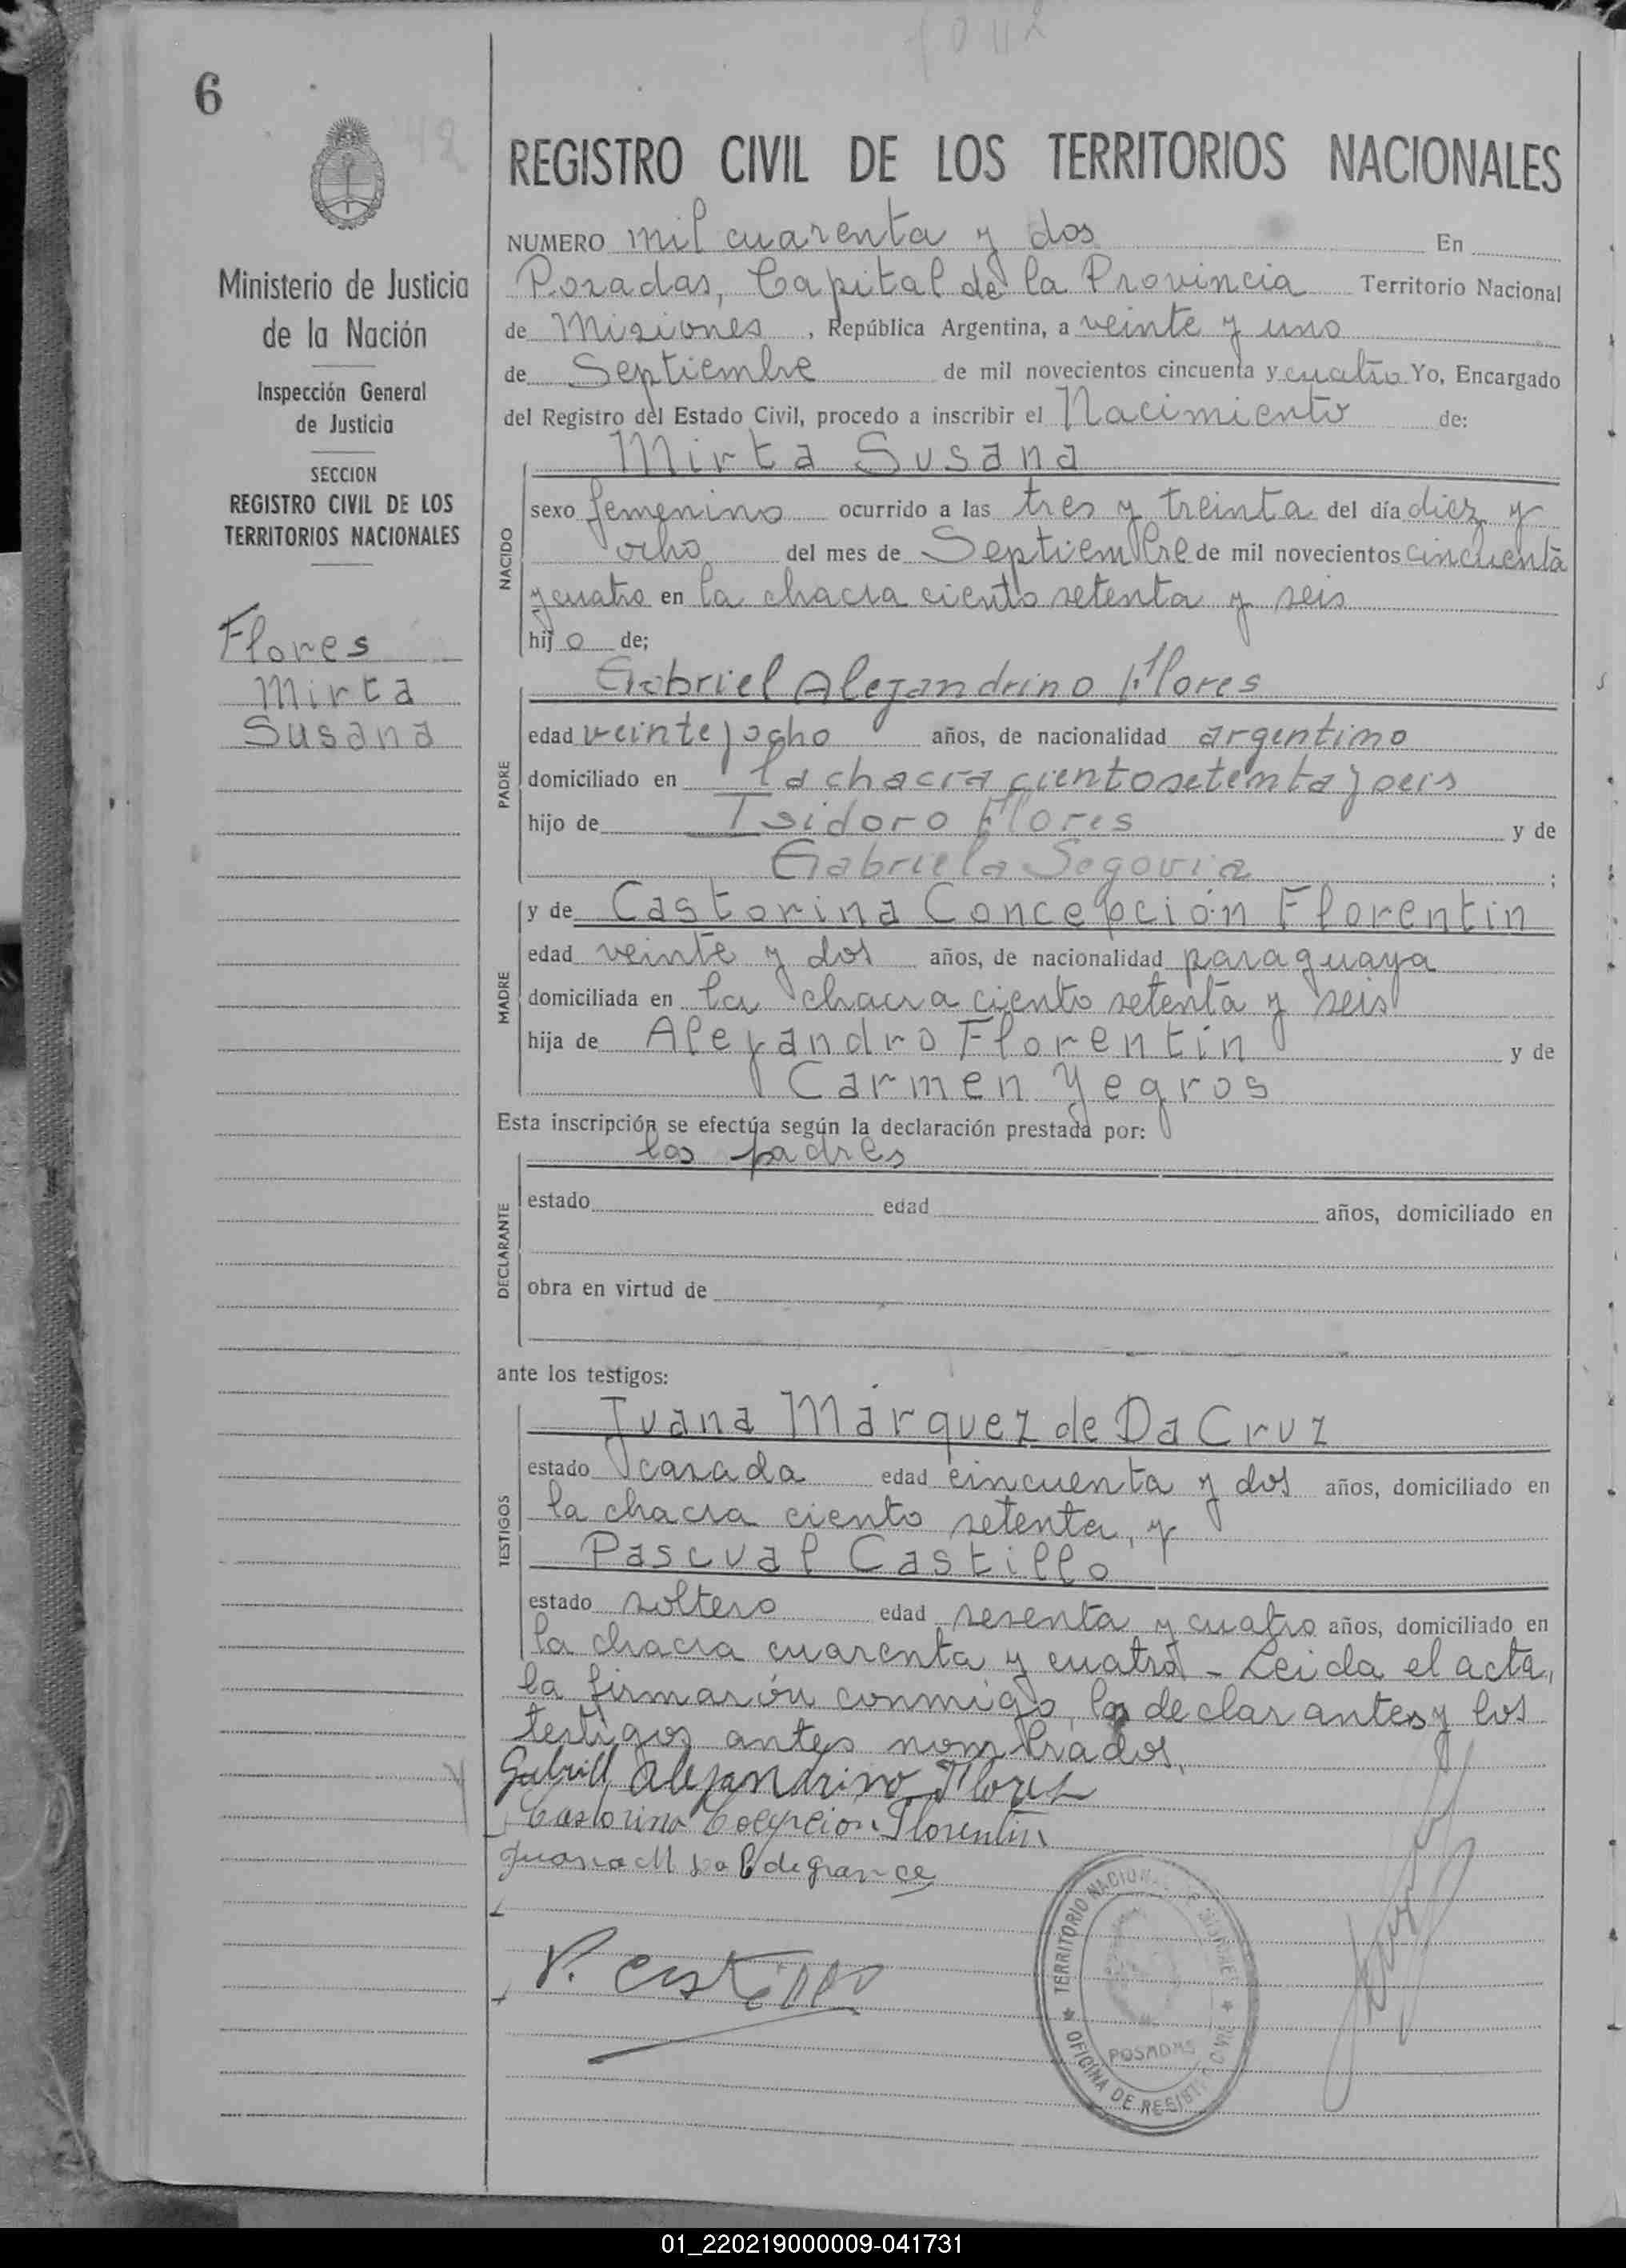 6
REGISTRO CIVIL DE LOS TERRITORIOS NACIONALES
Ministerio de Justicia
de la Nación
Inspección General
de Justicia
SECCION
REGISTRO CIVIL DE LOS
TERRITORIOS NACIONALES
Flores
Mirta
Susana
NUMERO mil cuarenta y dos En
Posadas, Capital de la Provincia Territorio Nacional
de Misiones, República Argentina, a veinte y uno
de Septiembre de mil novecientos cincuenta y cuatro Yo, Encargado
del Registro del Estado Civil, procedo a inscribir el Nacimiento de:
Mirta Susana
NACIDO
sexo femenino ocurrido a las tres y treinta del día diez y
ocho del mes de Septiembre de mil novecientos cincuenta
y cuatro en la chacra ciento setenta y seis
hijo de;
Gabriel Alejandrino Flores
PADRE
edad veinte y ocho años, de nacionalidad argentino
domiciliado en la chacra ciento setenta y seis
hijo de Isidoro Flores y de
Gabriela Segovia ;
y de Castorina Concepción Florentín
MADRE
edad veinte y dos años, de nacionalidad paraguaya
domiciliada en la chacra ciento setenta y seis
hija de Alejandro Florentín y de
Carmen Yegros
Esta inscripción se efectúa según la declaración prestada por:
los padres
DECLARANTE
estado edad años, domiciliado en
obra en virtud de
ante los testigos:
Juana Márquez de Da Cruz
TESTIGOS
estado casada edad cincuenta y dos años, domiciliado en
la chacra ciento setenta, y
Pascual Castillo
estado soltero edad sesenta y cuatro años, domiciliado en
la chacra cuarenta y cuatro - Leida el acta,
la firmarón conmigo, los declarantes y los
testigos antes nombrados.
Gabriel Alejandrino Flores
Castorina Florentín
Juana M
P. Castillo
TERRITORIO NACIONAL DE MISIONES
OFICINA DE REGISTRO CIVIL
POSADAS
01_220219000009-041731